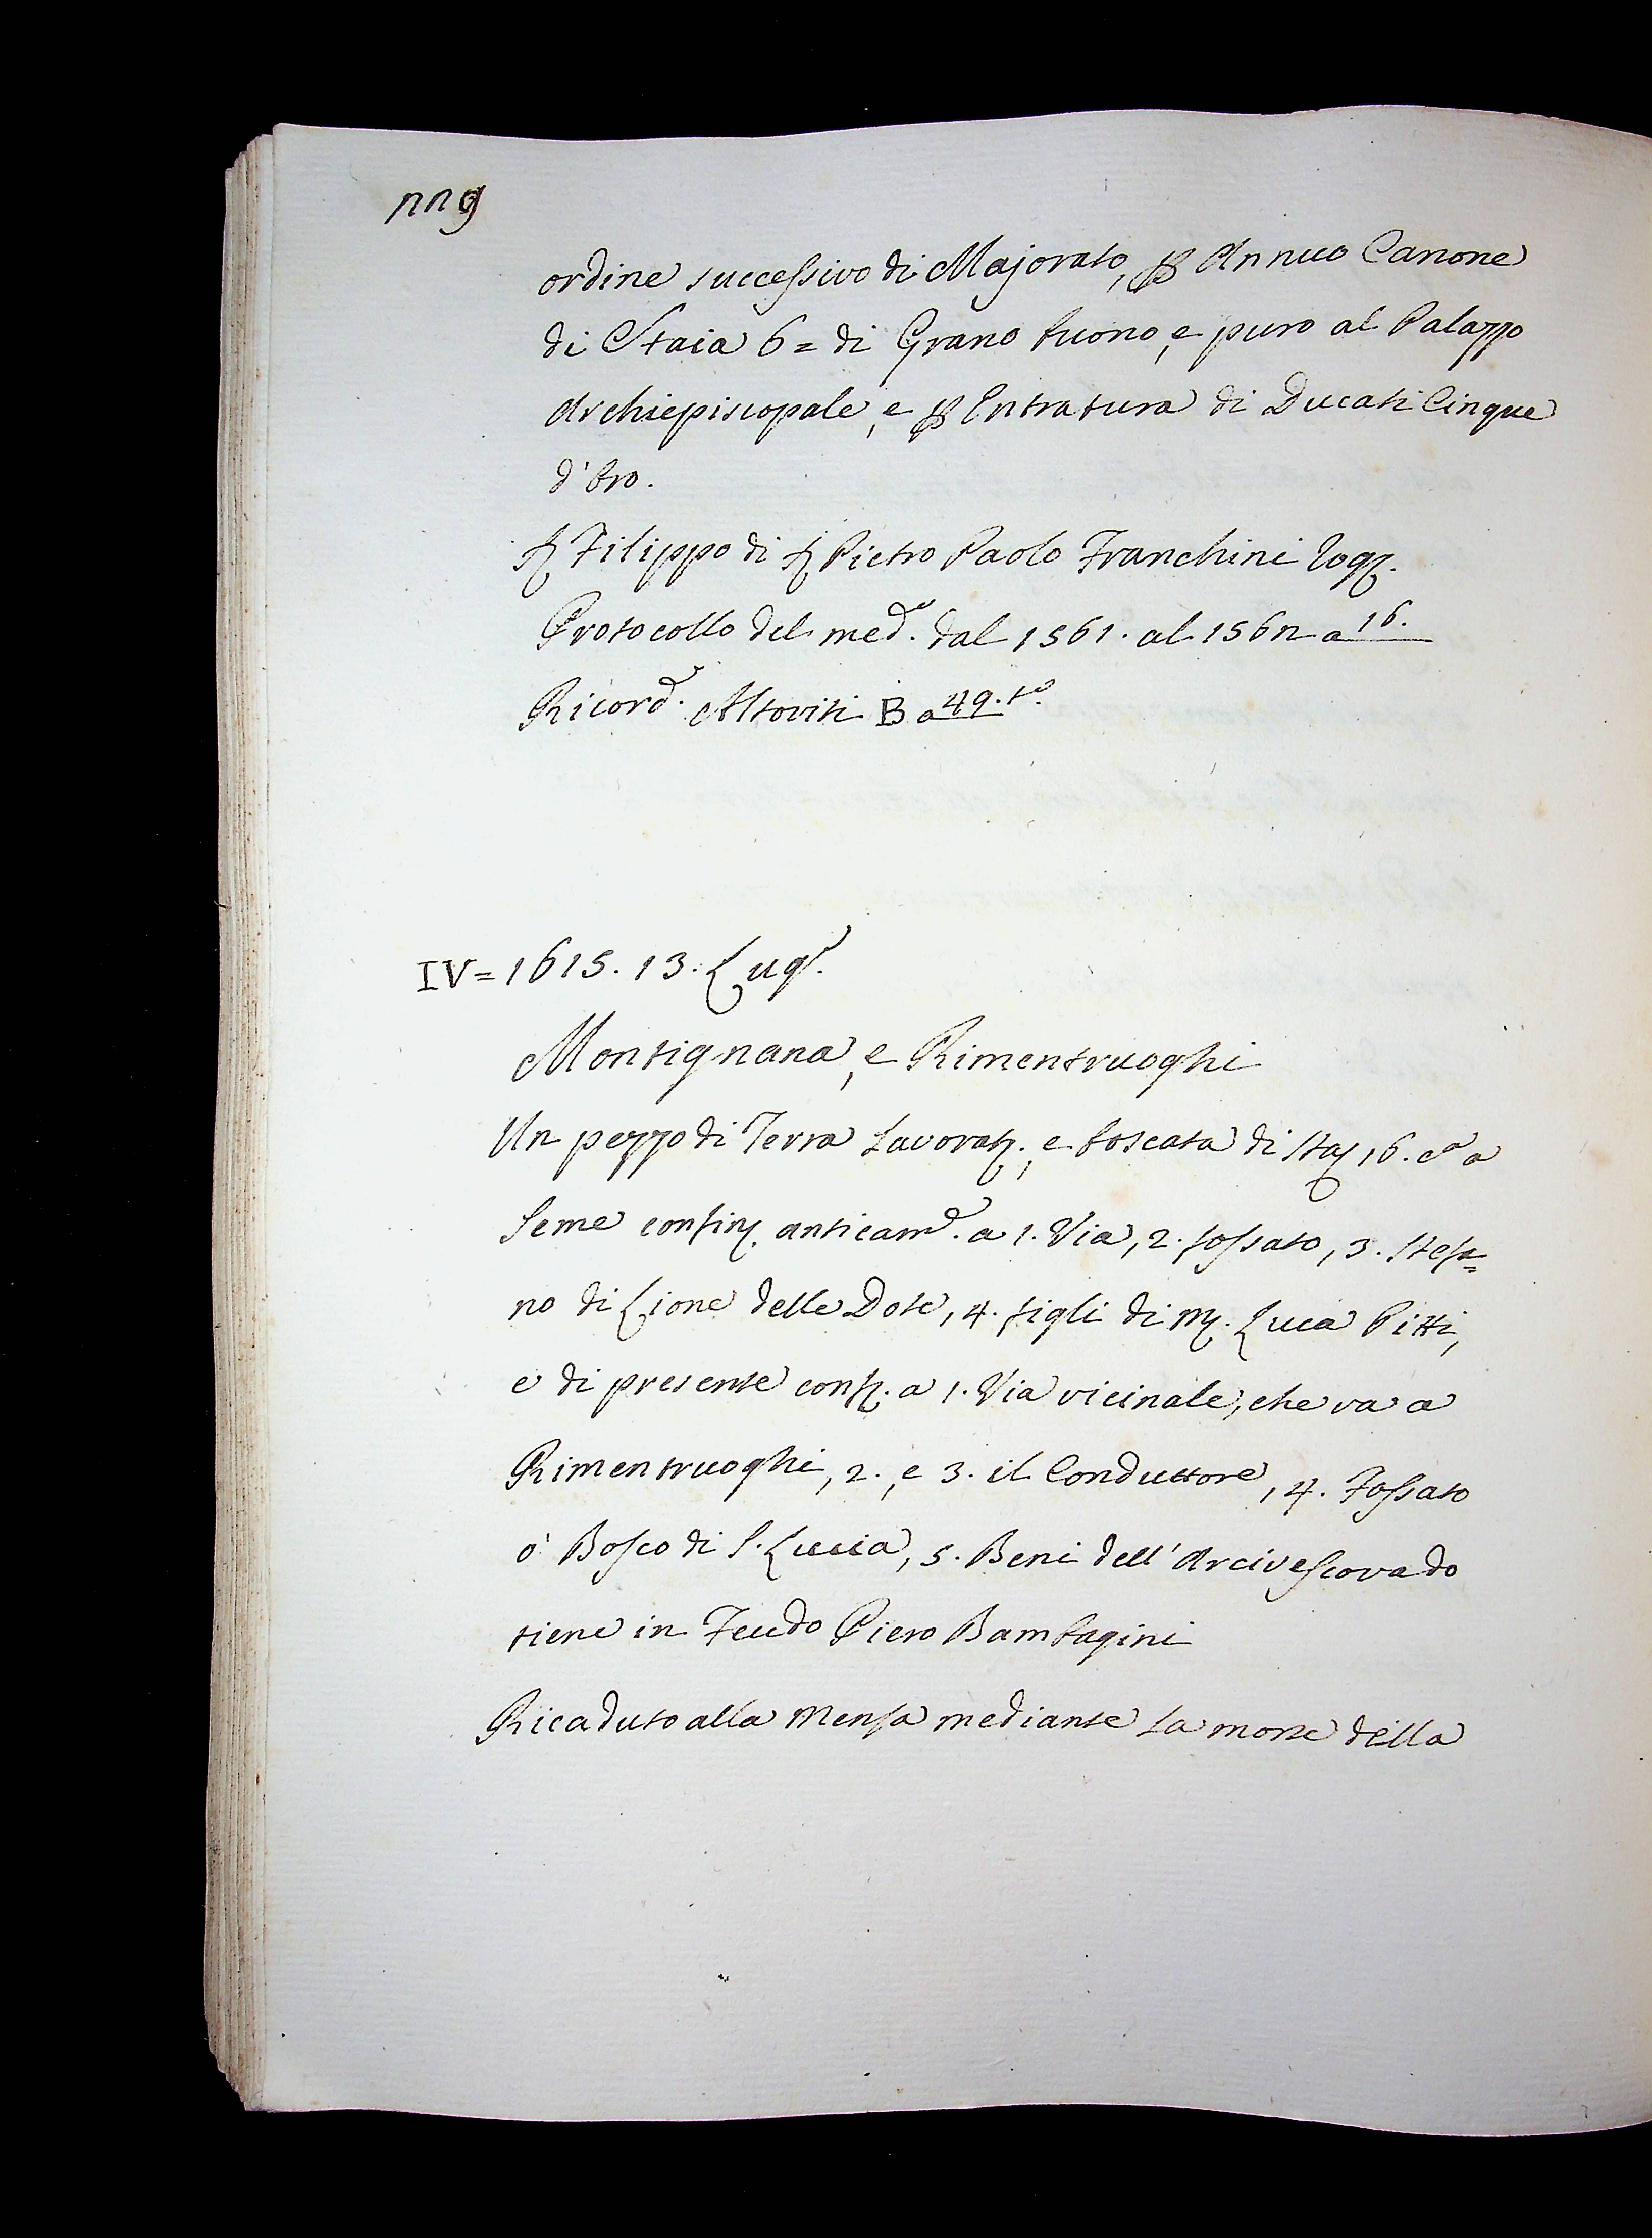 229
ordine successivo di Majorato, ꝑ Annuo Canone
di Staia 6 = di Grano buono, e puro al Palazzo
Archiepiscopale, e ꝑ Entratura di Ducati Cinque
d'Oro.
Filippo di Pietro Paolo Franchini Rog.
Protocollo del med.º dal 1561. al 1562 a 16.
Ricord.º Altoviti B a 49. tº.
IV = 1615. 13. Lugº.
Montignana, e Rimentruoghi
Un pezzo di Terra Lavorat., e boscata di Staj 16. cª a
Seme confin. anticamº. a 1. Via, 2. fossato, 3. Stefa=
no di Lione delle Dote, 4. figli di M. Luca Pitti,
e di presente conf. a 1. Via vicinale, che va a
Rimentruoghi, 2., e 3. il Conduttore, 4. Fossato
ò Bosco di S. Lucia, 5. Beni dell'Arcivescovado
tiene in Feudo Piero Bambagini
Ricaduto alla Mensa mediante la morte della